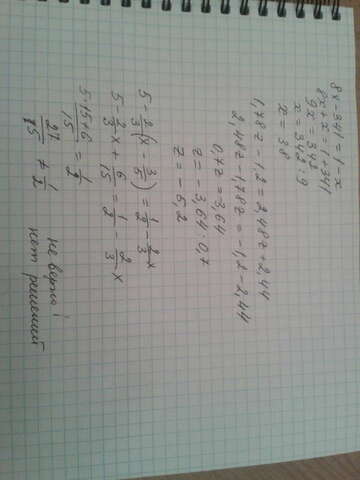 8x - 341 = 1 - x
8x + x = 1 + 341
9x = 342
x = 342 : 9
x = 38
1,78z - 1,2 = 2,48z + 2,44
2,48z - 1,78z = -1,2 - 2,44
0,7z = 3,64
z = -3,64 : 0,7
z = -5,2
5 - 2/3(x - 3/5) = 1/2 - 2/3x
5 - 2/3x + 6/15 = 1/2 - 2/3x
5·15+6/15 = 1/2
≠ 1/2 не верно!
нет решений